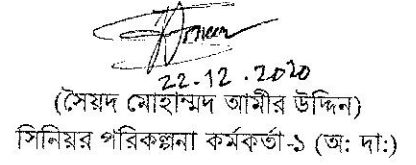 22.12.2020
(সৈয়দ মোহাম্মদ আমীর উদ্দিন)
সিনিয়র পরিকল্পনা কর্মকর্তা-১ (অ: দা:)